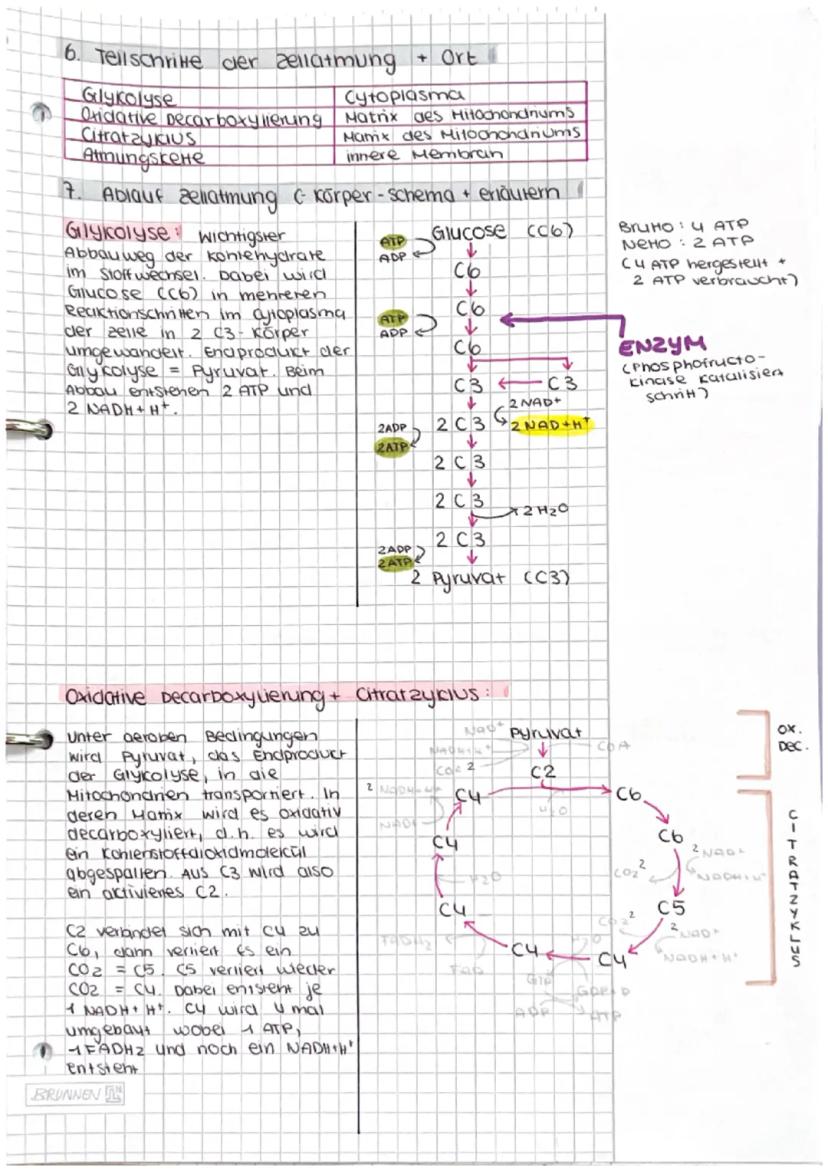 6. Teilschritte der Zellatmung + Ort
Glykolyse Cytoplasma
Oxidative Decarboxylierung Matrix des Mitochondriums
Citratzyklus Matrix des Mitochondriums
Atmungskette innere Membran
7. Ablauf Zellatmung C-Körper-schema + erläutern
Glykolyse: Wichtigster
Abbauweg der Kohlehydrate
im Stoffwechsel. Dabei wird
Glucose (C6) in mehreren
Reaktionschritten im Cytoplasma
der Zelle in 2 C3-Körper
umgewandelt. Endproduct der
Glykolyse = Pyruvat. Beim
Abbau entstehen 2 ATP und
2 NADH+H+.
Glucose (C6)
ATP
ADP
C6
C6
ATP
ADP
C6
C3 C3
2NAD+
2 C3 2NAD+H+
2ADP
2ATP
2 C3
2 C3
2H2O
2 C3
2ADP
2ATP
2 Pyruvat (C3)
Brutto: 4 ATP
Netto: 2 ATP
(4 ATP hergestellt +
2 ATP verbraucht)
ENZYM
(Phosphofructo-
kinase katalisiert
schritt)
Oxidative Decarboxylierung + Citratzyklus:
Unter aeroben Bedingungen
wird Pyruvat, das Endproduct
der Glykolyse, in die
Mitochondrien transportiert. In
deren Matrix wird es oxidativ
decarboxyliert, d.h. es wird
ein Kohlenstoffdioxidmolekül
abgespalten. Aus C3 wird also
ein aktiviertes C2.
C2 verbindet sich mit C4 zu
C6, dann verliert es ein
CO2 = C5. C5 verliert wieder
CO2 = C4. Dabei entsteht je
1 NADH+H+. C4 wird 4 mal
umgebaut wobei 1 ATP,
1 FADH2 und noch ein NADH+H+
entsteht
NAD+ Pyruvat
NADH+H+ CoA
CO2 2
C2
2 NADH+H+ C4 C6
NAD+ H2O
C4 C6
2 NAD+
CO2 2 NADH+H+
H2O
C4 C5
CO2 2
2 NAD+
FADH2 C4 H2O C4 NADH+H+
FAD
GTP GDP+P
ADP ATP
OX.
DEC.
CITRATZYKLUS
BRUNNEN